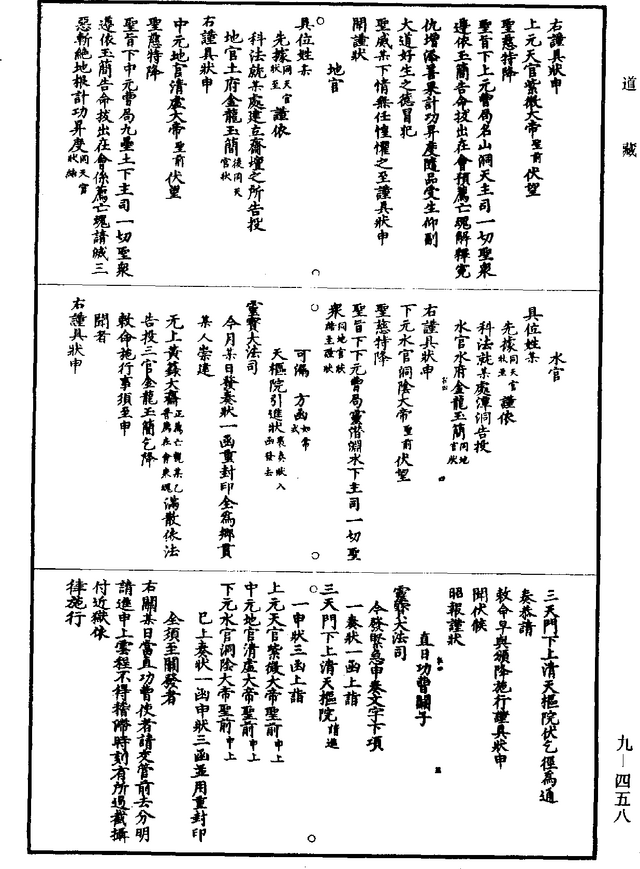 道藏
右謹具狀申
上元天官紫微大帝聖前伏望
聖慈特降
聖旨下上元曹局名山洞天主司一切聖衆
遵依玉簡告命拔出在會預薦亡魂解釋寃
仇增添善果計功昇度隨品受生仰副
大道好生之德冒犯
聖威某下情無任惶懼之至謹具狀申
聞謹狀
地官
具位姓某
先據同天官狀至謹依
科法就某處建立齋壇之所告投
地官土府金龍玉簡後同天官狀
右謹具狀申
中元地官清虛大帝聖前伏望
聖慈特降
聖旨下中元曹局九壘土下主司一切聖衆
遵依玉簡告命拔出在會係薦亡魂請滅三
惡斬絕地根計功昇度同天官狀語
水官
具位姓某
先據同天官狀至謹依
科法就某處潭洞告投
水官水府金龍玉簡同地官狀
右謹具狀申
下元水官洞陰大帝聖前伏望
聖慈特降
聖旨下下元曹局靈潛淵水下主司一切聖
衆同地官狀語至謹狀
可漏方函如常式
天樞院引進狀裹奏狀入函發去
靈寶大法司
今月某日發奏狀一函重封印全爲鄉貫
某人崇建
无上黃籙大齋正薦亡親某乙普薦在會衆魂滿散依法
告投三官金龍玉簡乞降
敕命施行事須至申
聞者
右謹具狀申
三天門下上清天樞院伏乞徑爲通
奏恭請
敕命早與頒降施行謹具狀申
聞伏候
昭報謹狀
直日功曹關子
靈寶大法司
今發緊急申奏文字下項
一奏狀一函上詣
三天門下上清天樞院請進
一申狀三函上詣
上元天官紫微大帝聖前申上
中元地官清虛大帝聖前申上
下元水官洞陰大帝聖前申上
已上奏狀一函申狀三函並用重封印
全須至關發者
右關某日當直功曹使者請交管前去分明
請進申上雲程不得稽滯時刻有所過截攝
付近獄依
律施行
九—四五八